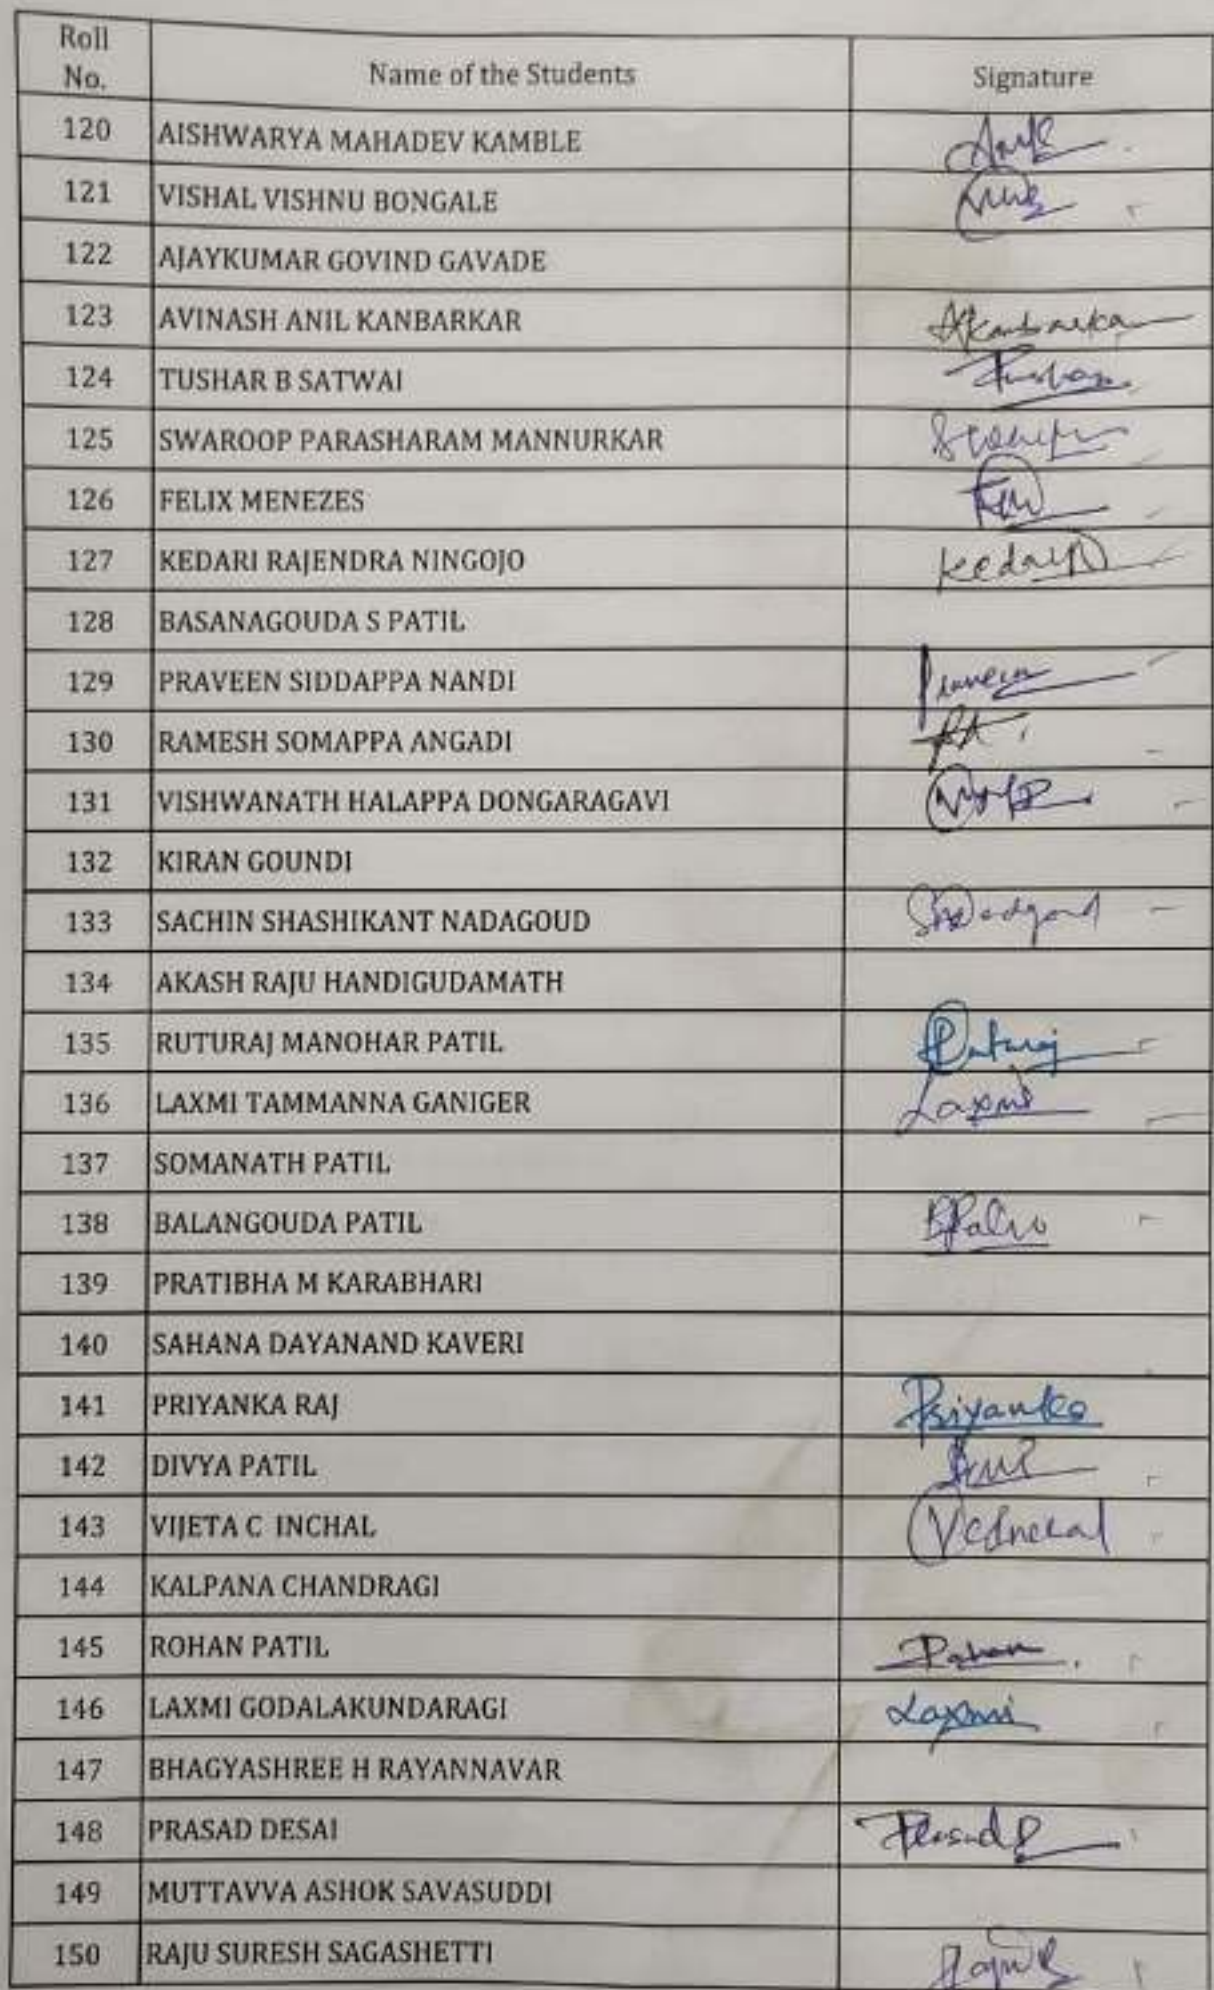 Roll No. Name of the Students Signature
120 AISHWARYA MAHADEV KAMBLE
121 VISHAL VISHNU BONGALE
122 AJAYKUMAR GOVIND GAVADE
123 AVINASH ANIL KANBARKAR AKanbarkar
124 TUSHAR B SATWAI Tushar
125 SWAROOP PARASHARAM MANNURKAR
126 FELIX MENEZES
127 KEDARI RAJENDRA NINGOJO Kedari
128 BASANAGOUDA S PATIL
129 PRAVEEN SIDDAPPA NANDI Praveen
130 RAMESH SOMAPPA ANGADI
131 VISHWANATH HALAPPA DONGARAGAVI
132 KIRAN GOUNDI
133 SACHIN SHASHIKANT NADAGOUD
134 AKASH RAJU HANDIGUDAMATH
135 RUTURAJ MANOHAR PATIL Ruturaj
136 LAXMI TAMMANNA GANIGER Laxmi
137 SOMANATH PATIL
138 BALANGOUDA PATIL
139 PRATIBHA M KARABHARI
140 SAHANA DAYANAND KAVERI
141 PRIYANKA RAJ Priyanka
142 DIVYA PATIL
143 VIJETA C INCHAL VCInchal
144 KALPANA CHANDRAGI
145 ROHAN PATIL Rohan
146 LAXMI GODALAKUNDARAGI Laxmi
147 BHAGYASHREE H RAYANNAVAR
148 PRASAD DESAI Prasad
149 MUTTAVVA ASHOK SAVASUDDI
150 RAJU SURESH SAGASHETTI